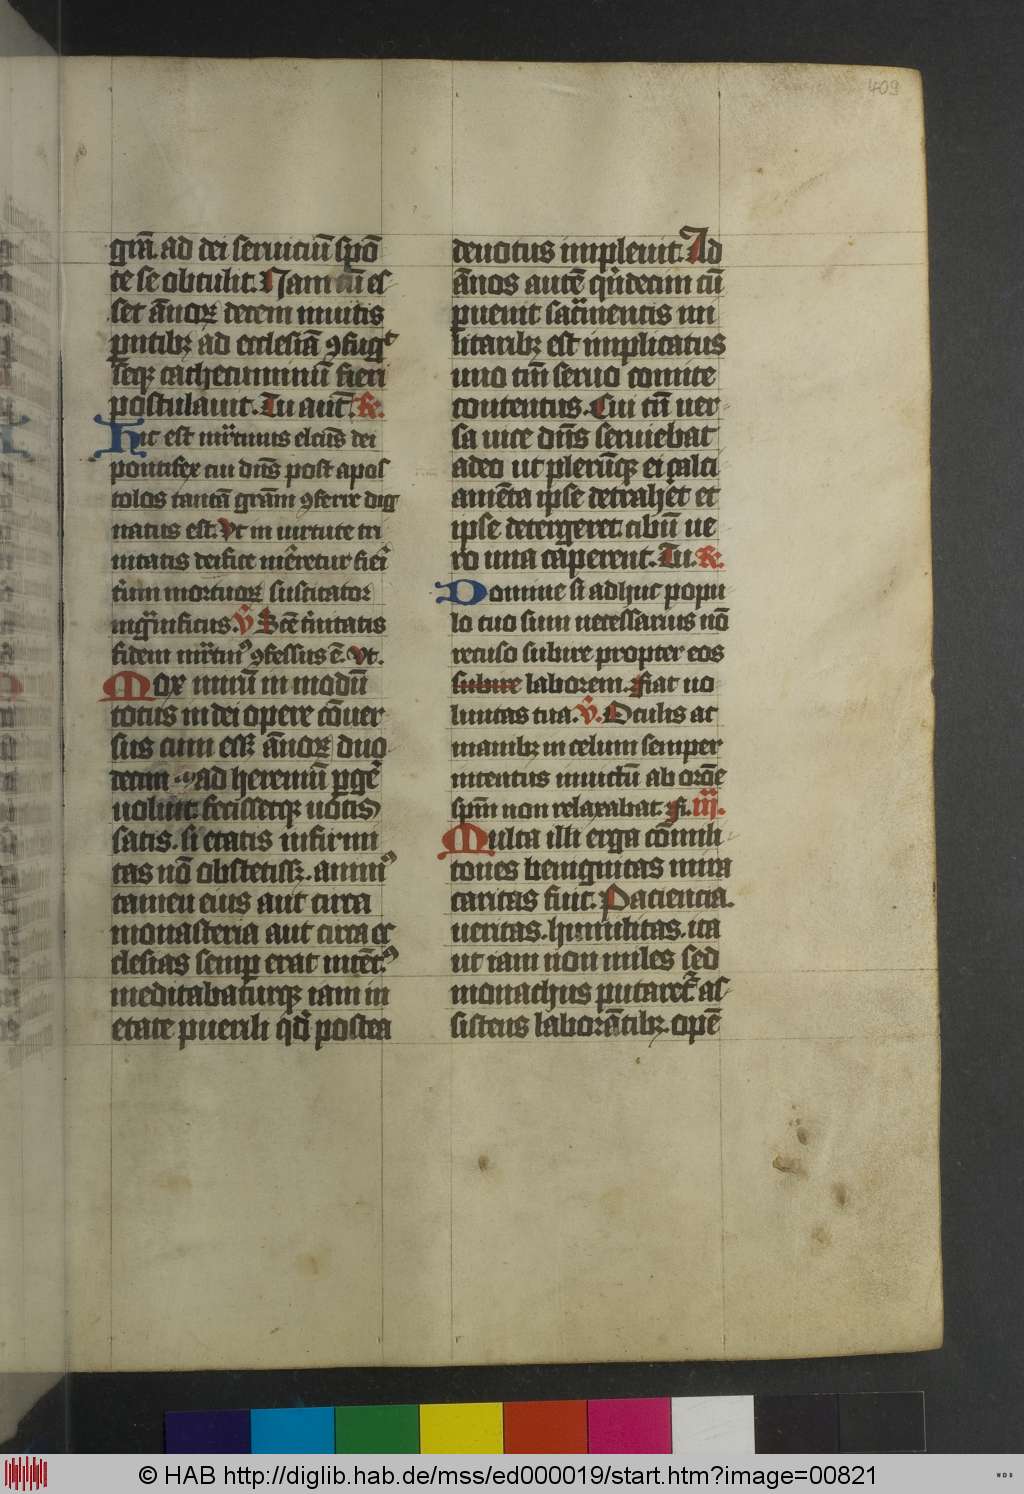 409
gr̄a. ad dei seruiciū spō
te se obtulit. Nam cū es
set ān̄oꝝ decem inuitis
pntibꝫ ad ecclesiā ꝯfugᵗ
seqꝫ cathecuminū fieri
postulauit. Tu aut̄. ℟.
Hic est mr̄tinus elcūs dei
pontifex cui dn̄s post apos
tolos tantā grām ꝯferre dig
natus est. Vt in uirtute tri
nitatis deifice mēretur fieri
triū mortuoꝝ suscitator
magnificus. ℣ Scē tinitatis
fidem mr̄tinꝰ ꝯfessus ē. Vt.
Mox mirū in modū
totus in dei opere cōuer
sus cum esꝫ ān̄oꝝ duo
decim ad heremū ꝑgē
voluit. fecissetqꝫ uotis
satis. si etatis infirmi
tas nō obstetissꝫ. animꝰ
tamen eius aut circa
monasteria aut circa ec
clesias semꝑ erat intētꝰ
meditabaturqꝫ iam in
etate puerili qd̄ postea
deuotus impleuit. Ad
ān̄os autē qͥndecim cū
ꝑuenit sacͣmentis mi
litaribꝫ est implicatus
uno tm̄ seruo comite
contentus. Cui tn̄ uer
sa uice dn̄s seruiebat
adeo ut plerūqꝫ ei calci
amēta ipse detrahet et
ipse detergeret cibū ue
ro una caperent. Tu. ℟.
Domine si adhuc popu
lo tuo sum necessarius nō
recuso subire propter eos
subire laborem. fiat uo
luntas tua. ℣. Oculis ac
manibꝫ in celum semper
intentus inuictū ab orōe
spm̄ non relaxabat. fi. iij.
Multa illi erga cōmili
tones benignitas mira
caritas fuit. Paciencia.
ueritas. humilitas. ita
ut iam non miles sed
monachus putaretᷣ as
sistens laborātibꝫ. opē
© HAB http://diglib.hab.de/mss/ed000019/start.htm?image=00821